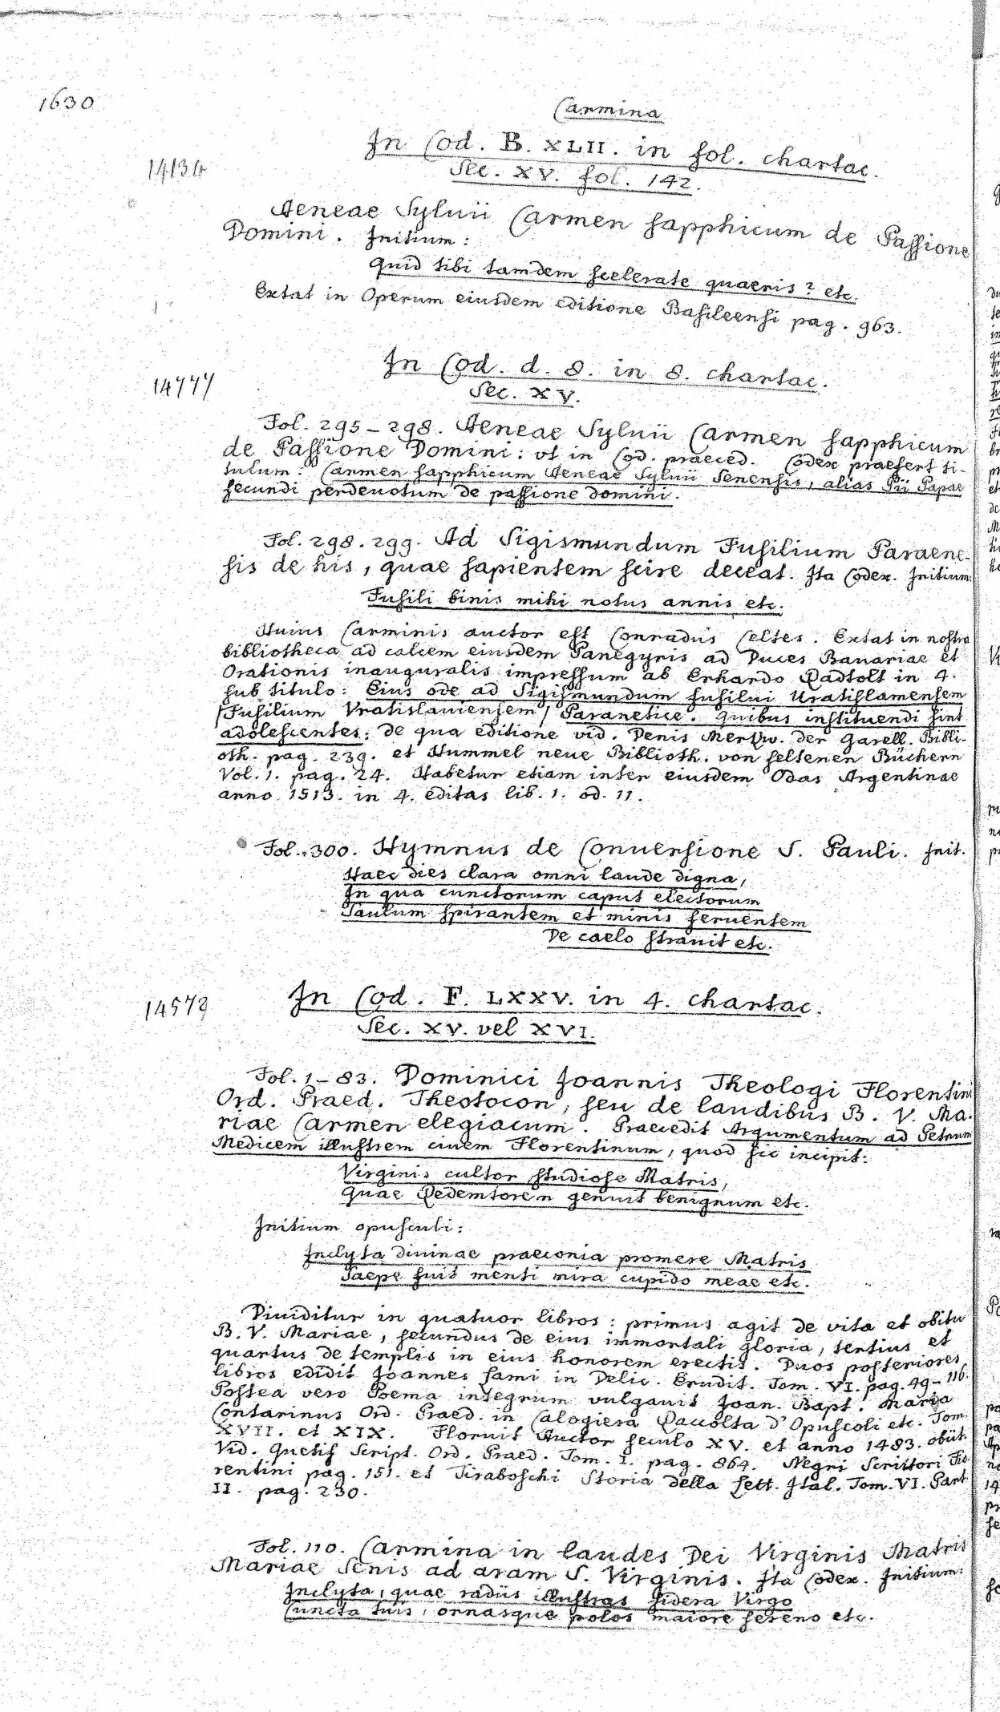 1630
Carmina
In Cod. B. XLII. in fol. chartac.
14134
Sec. XV. fol. 142.
Aeneae Syluii Carmen sapphicum de Passione
Domini. Initium:
Quid tibi tamdem scelerate quaeris? etc.
Extat in Operum eiusdem editione Basileensi pag. 963.
In Cod. d. 8. in 8. chartac.
14777
Sec. XV.
Fol. 295-298. Aeneae Syluii Carmen sapphicum
de Passione Domini: vt in Cod. praeced. Codex praefert ti-
tulum: Carmen sapphicum Aeneae Syluii Senensis, alias Pii Papae
secundi perdeuotum de passione domini.
Fol. 298. 299. Ad Sigismundum Fusilium Paraene-
sis de his, quae sapientem scire deceat. Ita Codex. Initium:
Fusili binis mihi notus annis etc.
Huius Carminis auctor est Conradus Celtes. Extat in nostra
bibliotheca ad calcem eiusdem Panegyris ad Duces Bauariae et
Orationis inauguralis impressum ab Erhardo Radtolt in 4.
sub titulo: Eius ode ad Sigismundum fusilui Uratislamensem
/Fusilium Vratislauiensem/ Paranetice. quibus instituendi sint
adolescentes: de qua editione vid. Denis Merkw. der Garell. Bibli-
oth. pag. 239. et Hummel neue Biblioth. von seltenen Büchern
Vol. 1. pag. 24. Habetur etiam inter eiusdem Odas Argentinae
anno 1513. in 4. editas lib. 1. od. 11.
Fol. 300. Hymnus de Conuersione S. Pauli. Init.
Haec dies clara omni laude digna,
In qua cunctorum caput electorum
Saulum spirantem et minis feruentem
De caelo strauit etc.
In Cod. F. LXXV. in 4. chartac.
14573
Sec. XV. vel XVI.
Fol. 1-83. Dominici Joannis Theologi Florentini
Ord. Praed. Theotocon, seu de laudibus B. V. Ma-
riae Carmen elegiacum. Praecedit Argumentum ad Petrum
Medicem illustrem ciuem Florentinum, quod sic incipit:
Virginis cultor studiose Matris,
Quae Redemtorem genuit benignum etc.
Initium opusculi:
Inclyta diuinae praeconia promere Matris
Saepe fuit menti mira cupido meae etc.
Diuiditur in quatuor libros: primus agit de vita et obitu
B. V. Mariae, secundus de eius immortali gloria, tertius et
quartus de templis in eius honorem erectis. Duos posteriores
libros edidit Joannes Lami in Delic. Erudit. Tom. VI. pag. 49-116.
Postea vero Poema integrum vulgauit Joan. Bapt. Maria
Contarinus Ord. Praed. in Calogiera Raccolta d'Opuscoli etc. Tom.
XVII. et XIX. Floruit Auctor seculo XV. et anno 1483. obiit.
Vid. Quetif Script. Ord. Praed. Tom. I. pag. 864. Negri Scrittori Fio-
rentini pag. 151. et Tiraboschi Storia della Lett. Ital. Tom. VI. Part.
II. pag. 230.
Fol. 110. Carmina in laudes Dei Virginis Matris
Mariae Senis ad aram S. Virginis. Ita Codex. Initium:
Inclyta, quae radiis illustras sidera Virgo
Cuncta tuis, ornasque polos maiore sereno etc.